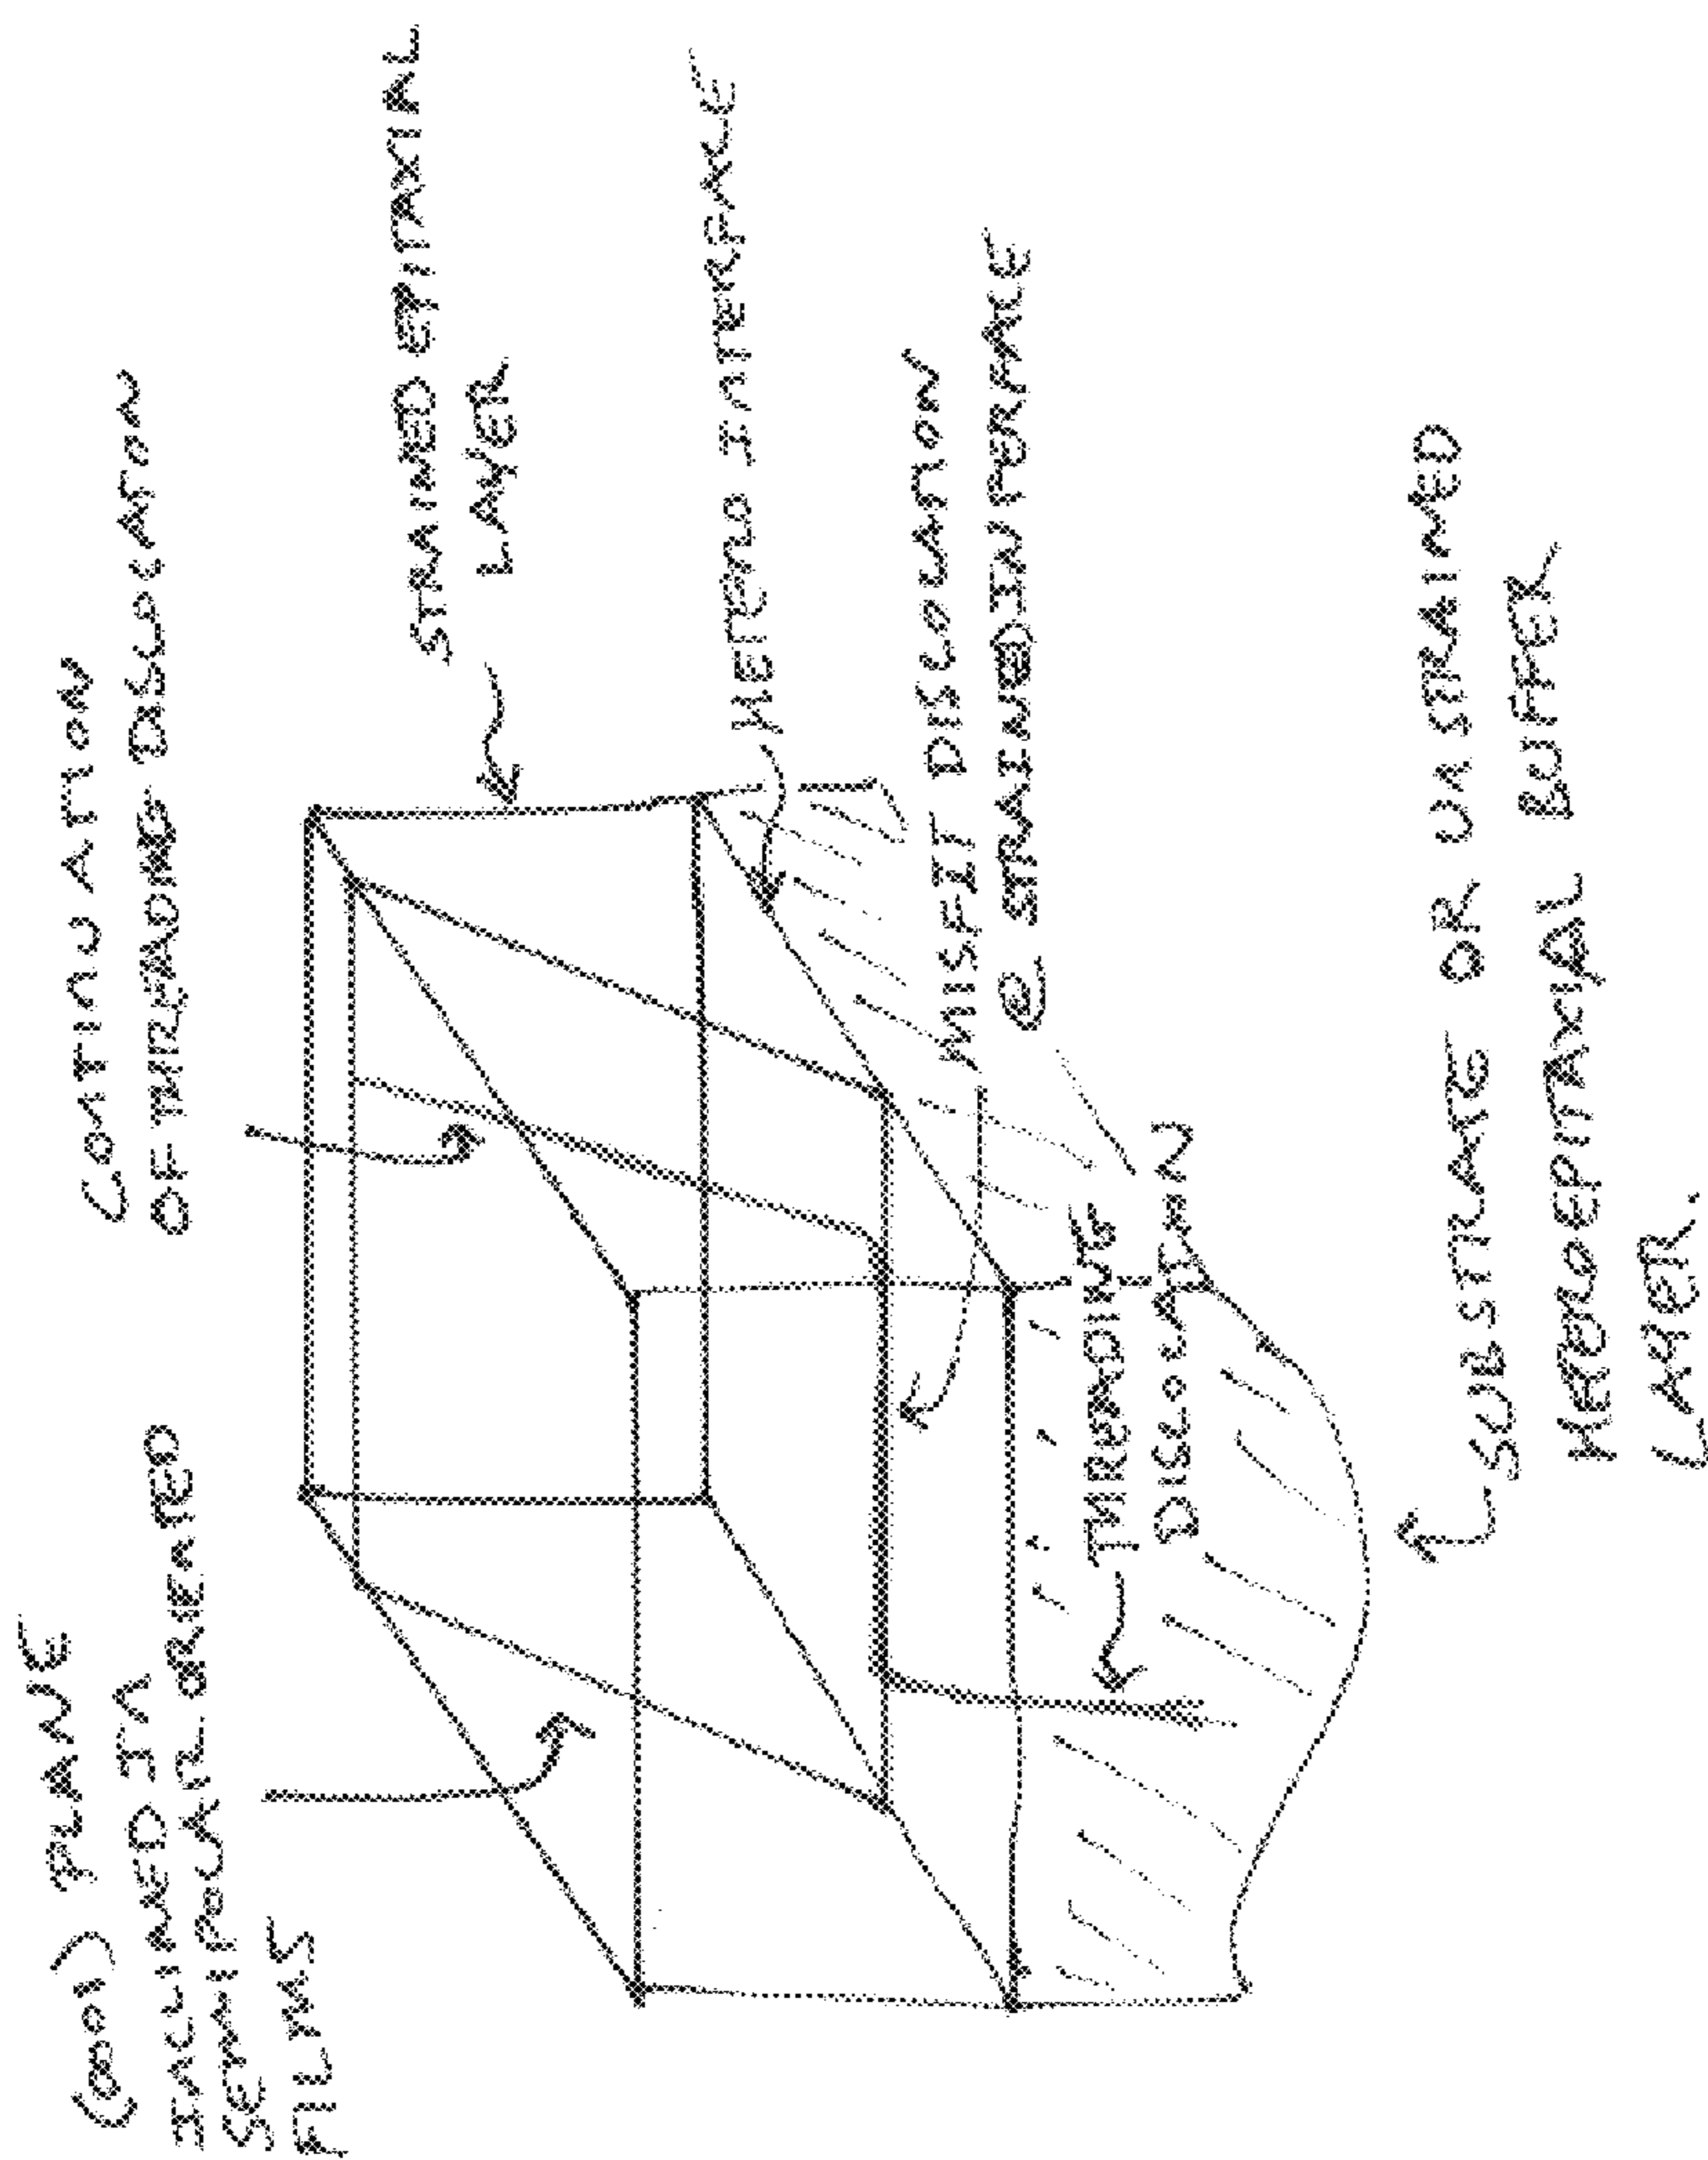 (0001) PLANE
INCLINED IN
SEMIPOLAR ORIENTED
FILMS
CONTINUATION
OF THREADING DISLOCATION
STRAINED EPITAXIAL
LAYER
HETERO INTERFACE
MISFIT DISLOCATION
@ STRAINED INTERFACE
THREADING
DISLOCATION
SUBSTRATE OR UNSTRAINED
HETEROEPITAXIAL BUFFER
LAYER.